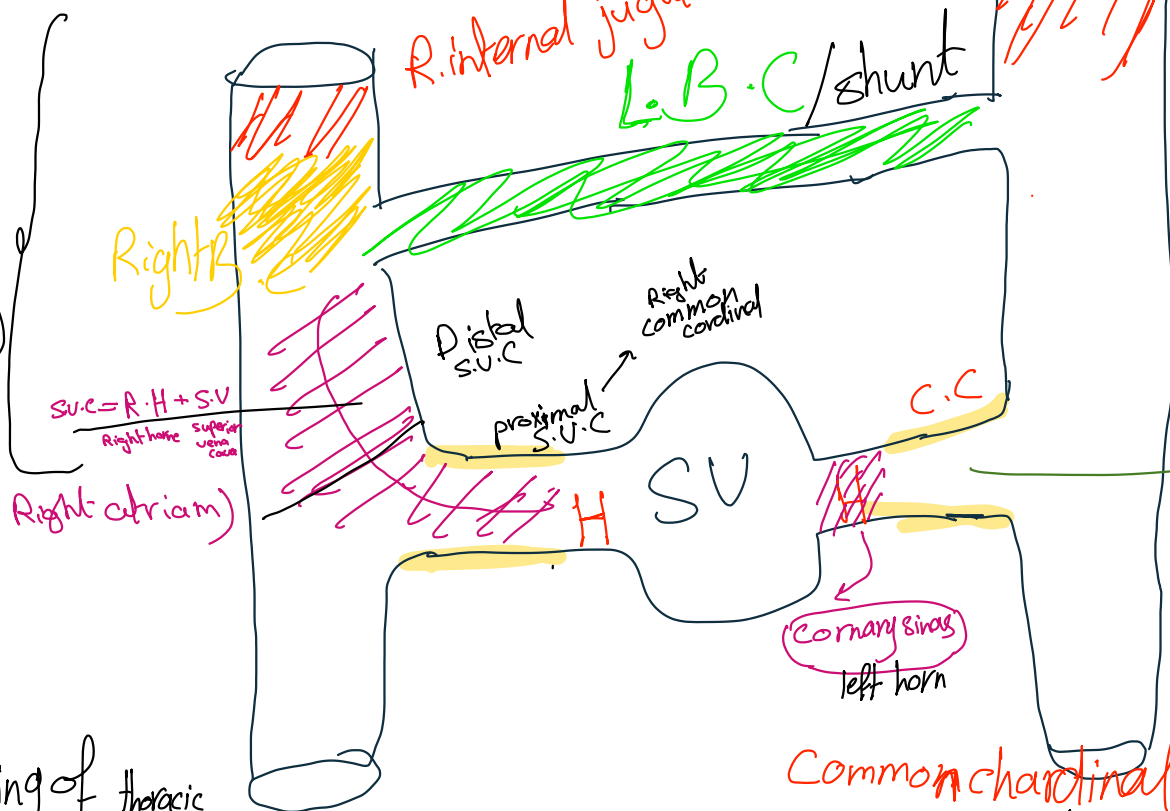 R.internal jugu
L.B.C/shunt
Right B.C
Right
common
cordinal
Distal
S.V.C
proximal
S.V.C
C.C
S.V.C=R.H+S.V
Right horne superior
vena
cava
SV
H
H
Right atriam)
Cornary sinas
left horn
ing of thoracic
Common chardinal